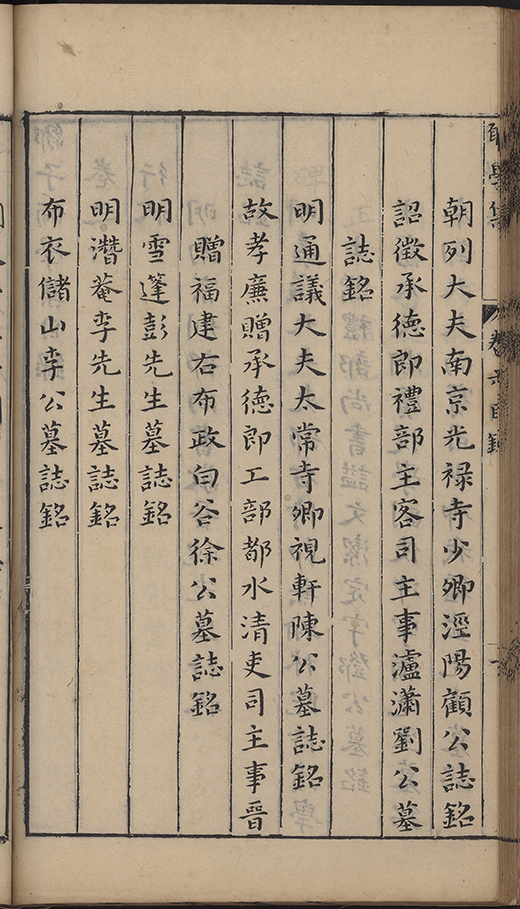 學集
卷六目錄
朝列大夫南京光禄寺少卿涇陽顧公誌銘
詔徵承德郎禮部主客司主事瀘瀟劉公墓
誌銘
明通議大夫太常寺卿視軒陳公墓誌銘
故孝廉贈承德郎工部都水清吏司主事晉
贈福建右布政白谷徐公墓誌銘
明雪蓬彭先生墓誌銘
明潛菴李先生墓誌銘
布衣儲山李公墓誌銘